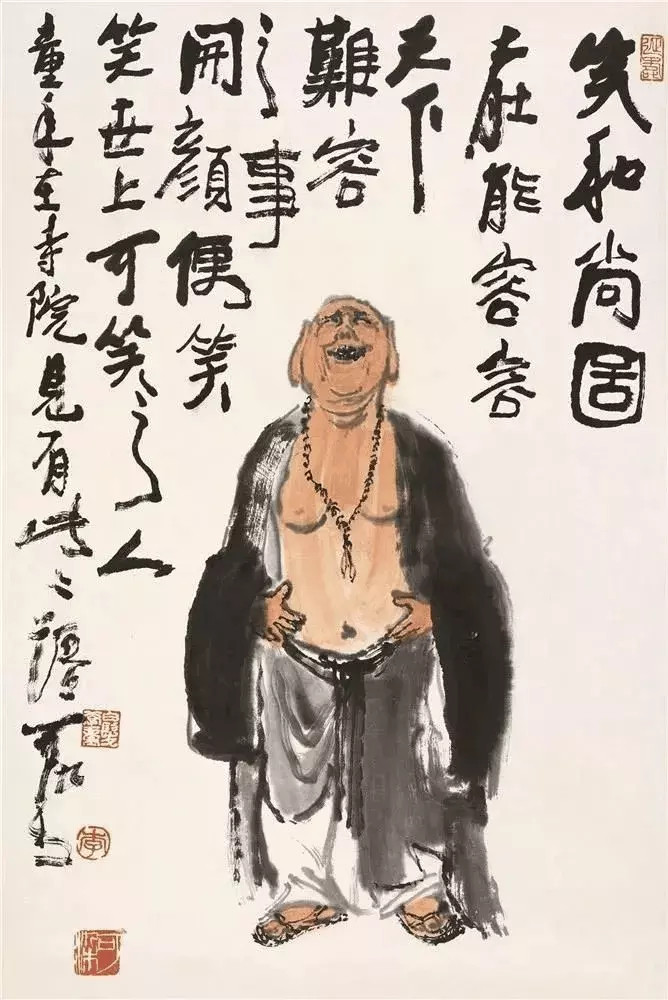 笑和尚圖
大肚能容容
天下
難容
之事
開顏便笑
笑世上可笑之人
童年在寺院見有此
可染
李
可染